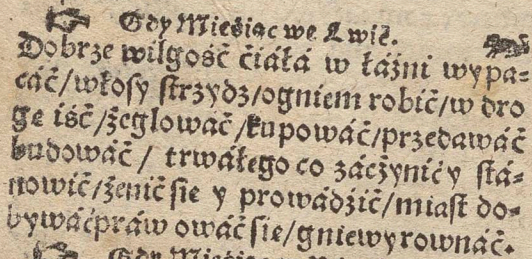 Gdy Mieśiąc we Lwie.
Dobrze wilgość ćiáłá w łáźni wypa-
cáć/włosy strzydz/ogniem robić/w dro
gę iść/żeglowáć/kupowáć/przedawáć
budowáć/ trwáłego co záczynić y stá-
nowić/żenić sie y prowádźić/miast do-
bywáćpráw owáć sie/gniewyrownáć.
Gdy Mieśiąc